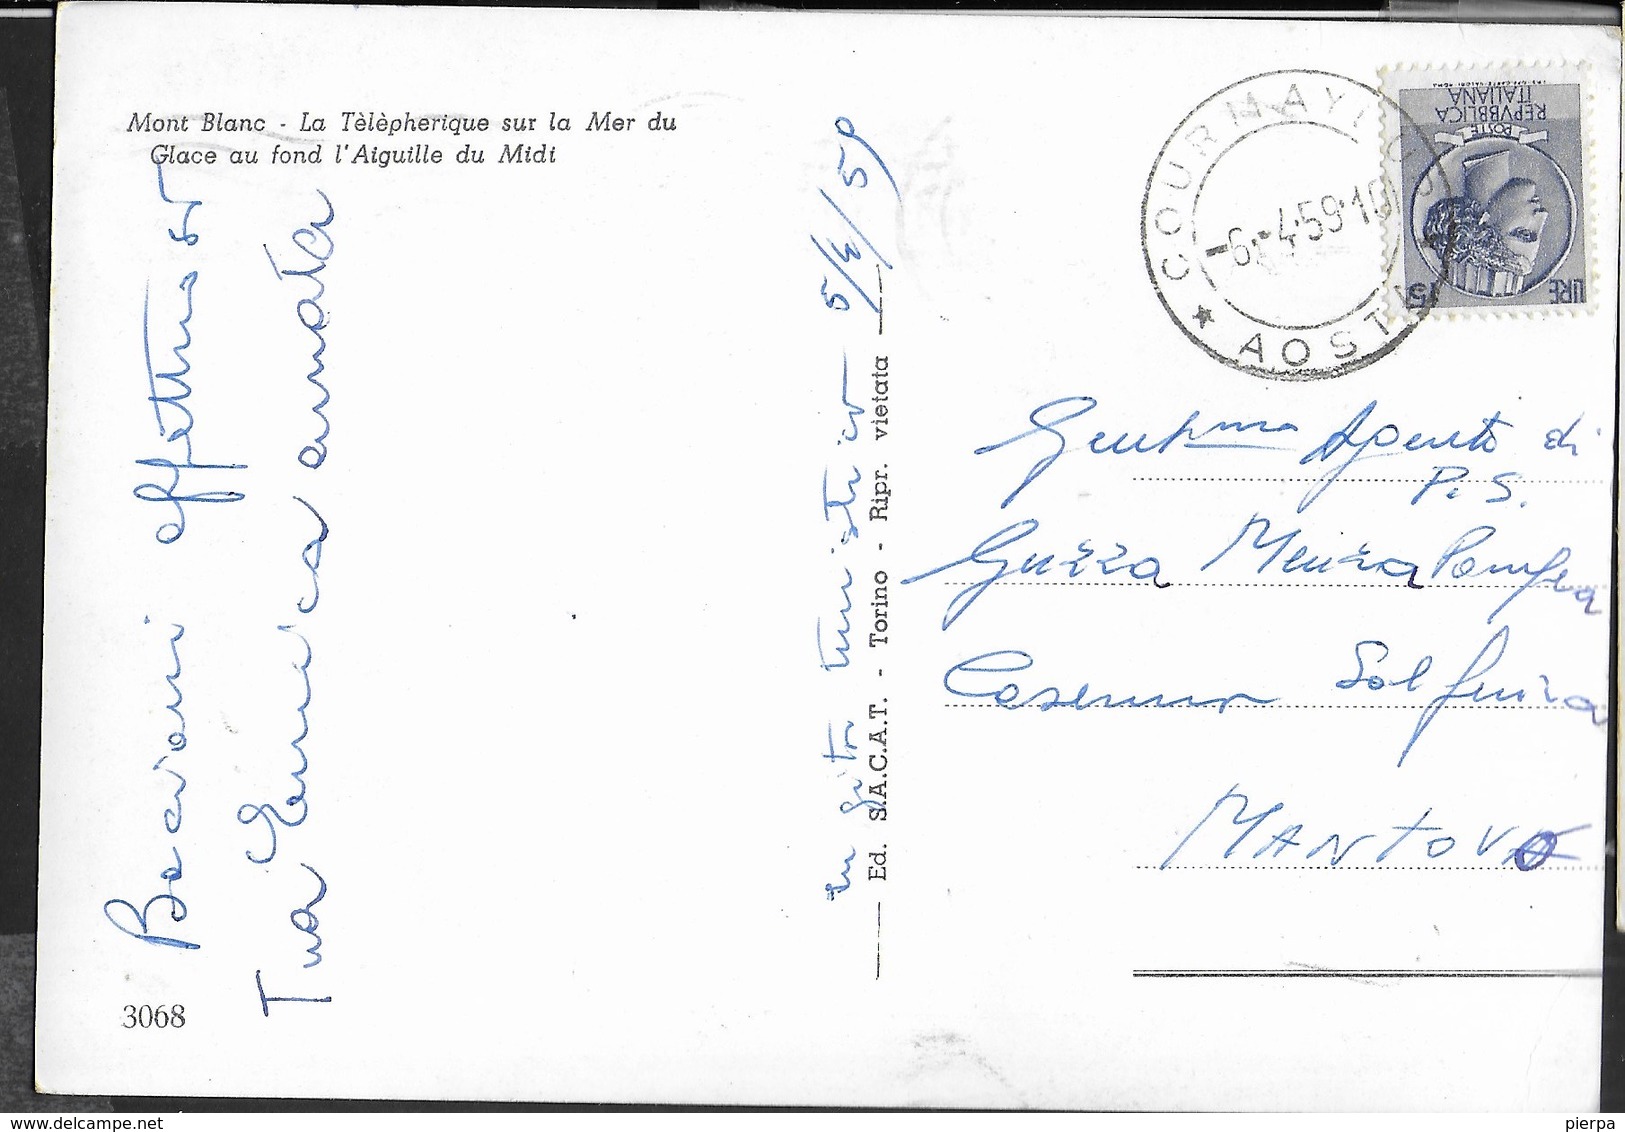 Mont Blanc - La Tèlèpherique sur la Mer du
Glace au fond l'Aiguille du Midi
Bacioni affettuosi
Tua amata
in gita turistica 5/4/59
Ed. S.A.C.A.T. - Torino - Ripr. vietata
3068
COURMAYEUR
-6.-4.59.10
★ AOSTA
REPVBBLICA
ITALIANA
POSTE
LIRE 15
Gent.ma Agente di
P. S.
Guzza
Caserma Solferino
MANTOVA
pierpa
www.delcampe.net